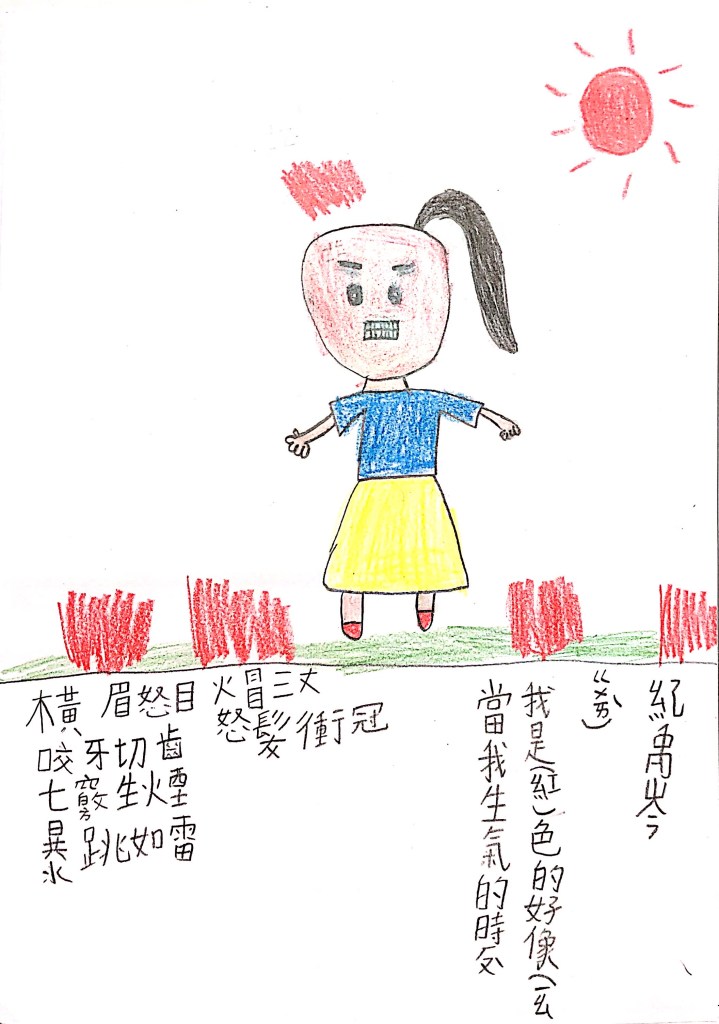 紀禹岑
當我生氣的時
我是(紅)色的好像(ㄧㄠ
ㄍㄨㄞˋ)
火冒三丈
怒髮衝冠
橫眉怒目
咬牙切齒
七竅生煙
暴跳如雷